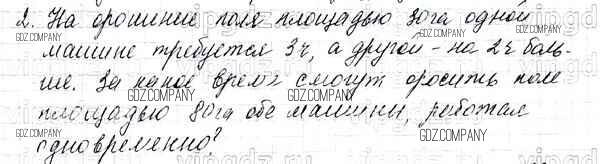 2. На орошение поля площадью 30га одной
машине требуется 3ч, а другой - на 2ч боль-
ше. За какое время смогут оросить поле
площадью 80га обе машины, работая
одновременно?
GDZ.COMPANY
GDZ.COMPANY
GDZ.COMPANY
GDZ.COMPANY
GDZ.COMPANY
GDZ.COMPANY
GDZ.COMPANY
GDZ.COMPANY